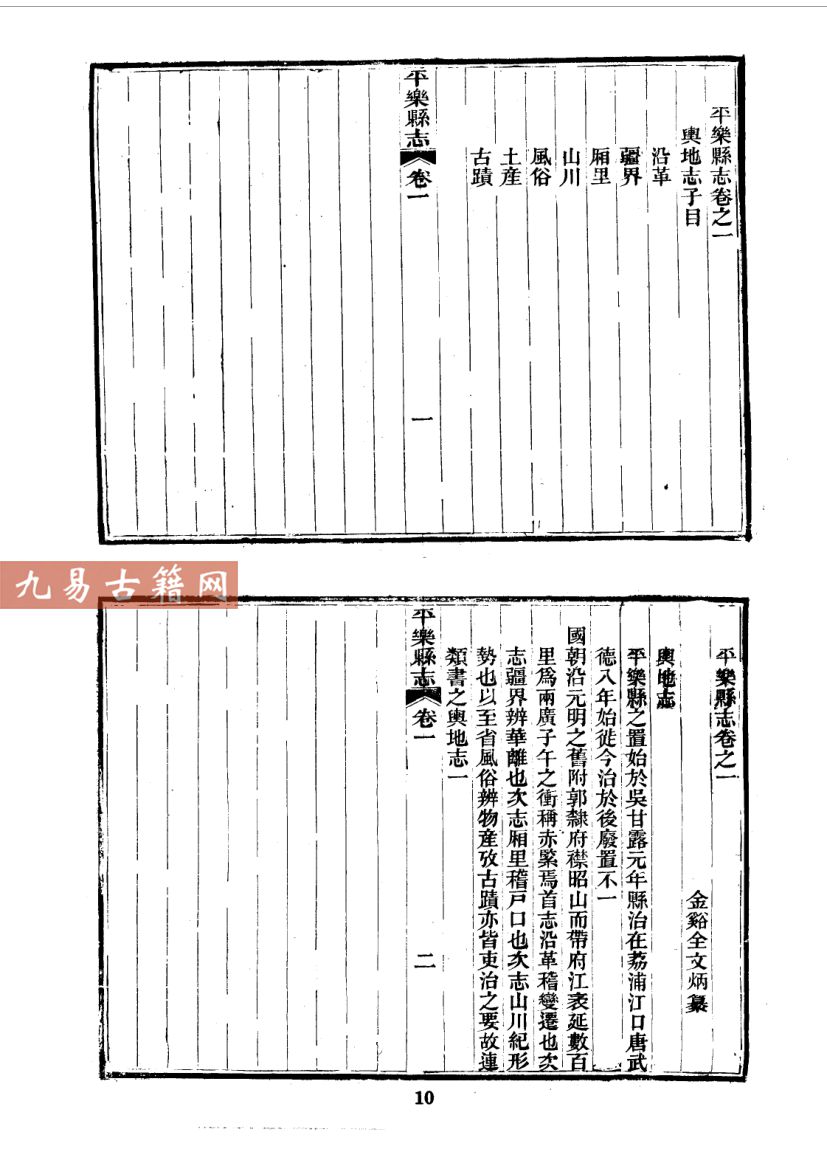 平樂縣志卷之一
輿地志子目
沿革
疆界
厢里
山川
風俗
土産
古蹟
平樂縣志
卷一
一
九易古籍网
平樂縣志卷之一
金谿全文炳纂
輿地志
平樂縣之置始於吳甘露元年縣治在荔浦江口唐武
德八年始徙今治於後廢置不一
國朝沿元明之舊附郭隸府襟昭山而帶府江袤延數百
里爲兩廣子午之衝稱赤緊焉首志沿革稽變遷也次
志疆界辨華離也次志厢里稽戸口也次志山川紀形
勢也以至省風俗辨物産攷古蹟亦皆吏治之要故連
類書之輿地志一
平樂縣志
卷一
二
10